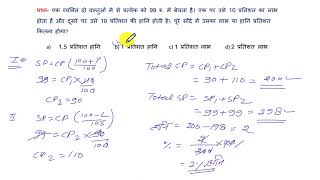 प्रश्न- एक व्यक्ति दो वस्तुओं मे से प्रत्येक को 99 रु. मे बेचता है। एक पर उसे 10 प्रतिशत का लाभ
होता है और दूसरे पर उसे 10 प्रतिशत की हानि होती है। पूरे सौदे में उसका लाभ या हानि प्रतिशत
कितना होगा?
a) 1.5 प्रतिशत हानि b) 1 प्रतिशत हानि c) 1 प्रतिशत लाभ d) 2 प्रतिशत लाभ
SP = CP (100+P / 100)
99 = CP1 × 110 / 100
CP1 = 90
II SP = CP (100-L / 100)
99 = CP2 × 90 / 100
CP2 = 110
Total CP = CP1 + CP2
= 90 + 110 = 200
Total SP = 99 + 99 = 198
हानि = 200 - 198 = 2
% = 2 / 200 × 100
= 1% हानि